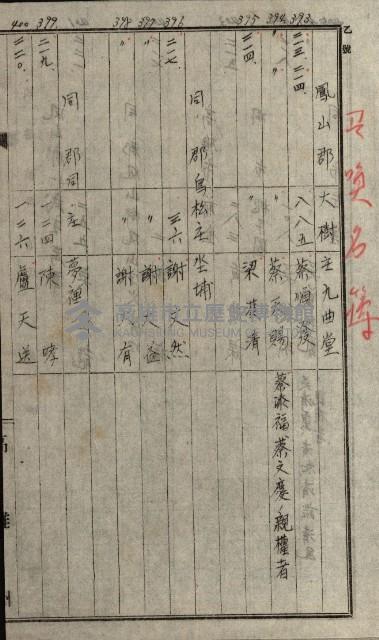 乙號
召喚名簿
鳳山郡大樹庄九曲堂
393 二三 八八五 蔡順發
394 二四 〃 蔡天賜 蔡添福、蔡文慶ノ親權者
395 二四 〃 梁水清
同郡鳥松庄坐埔
396 二七 三六 謝然
397 〃 〃 謝益
398 〃 〃 謝有
同郡同庄夢裡
399 二九 一二四 陳哮
400 二二〇 一二六 盧天送
高雄州
高雄市立歷史博物館
KAOHSIUNG MUSEUM OF HISTORY